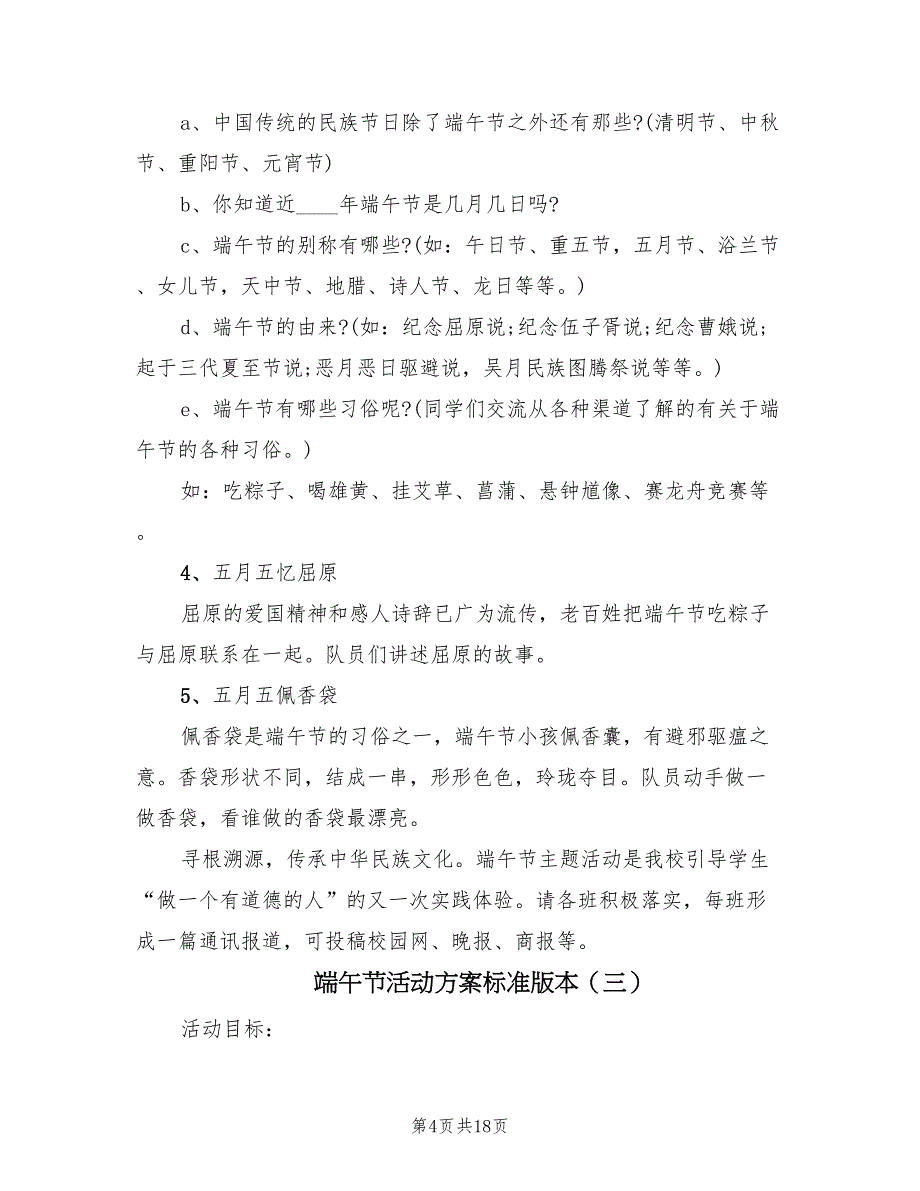 a、中国传统的民族节日除了端午节之外还有那些?(清明节、中秋
节、重阳节、元宵节)
b、你知道近____年端午节是几月几日吗?
c、端午节的别称有哪些?(如：午日节、重五节，五月节、浴兰节
、女儿节，天中节、地腊、诗人节、龙日等等。)
d、端午节的由来?(如：纪念屈原说;纪念伍子胥说;纪念曹娥说;
起于三代夏至节说;恶月恶日驱避说，吴月民族图腾祭说等等。)
e、端午节有哪些习俗呢?(同学们交流从各种渠道了解的有关于端
午节的各种习俗。)
如：吃粽子、喝雄黄、挂艾草、菖蒲、悬钟馗像、赛龙舟竞赛等
。
4、五月五忆屈原
屈原的爱国精神和感人诗辞已广为流传，老百姓把端午节吃粽子
与屈原联系在一起。队员们讲述屈原的故事。
5、五月五佩香袋
佩香袋是端午节的习俗之一，端午节小孩佩香囊，有避邪驱瘟之
意。香袋形状不同，结成一串，形形色色，玲珑夺目。队员动手做一
做香袋，看谁做的香袋最漂亮。
寻根溯源，传承中华民族文化。端午节主题活动是我校引导学生
“做一个有道德的人”的又一次实践体验。请各班积极落实，每班形
成一篇通讯报道，可投稿校园网、晚报、商报等。
端午节活动方案标准版本（三）
活动目标：
第4页共18页